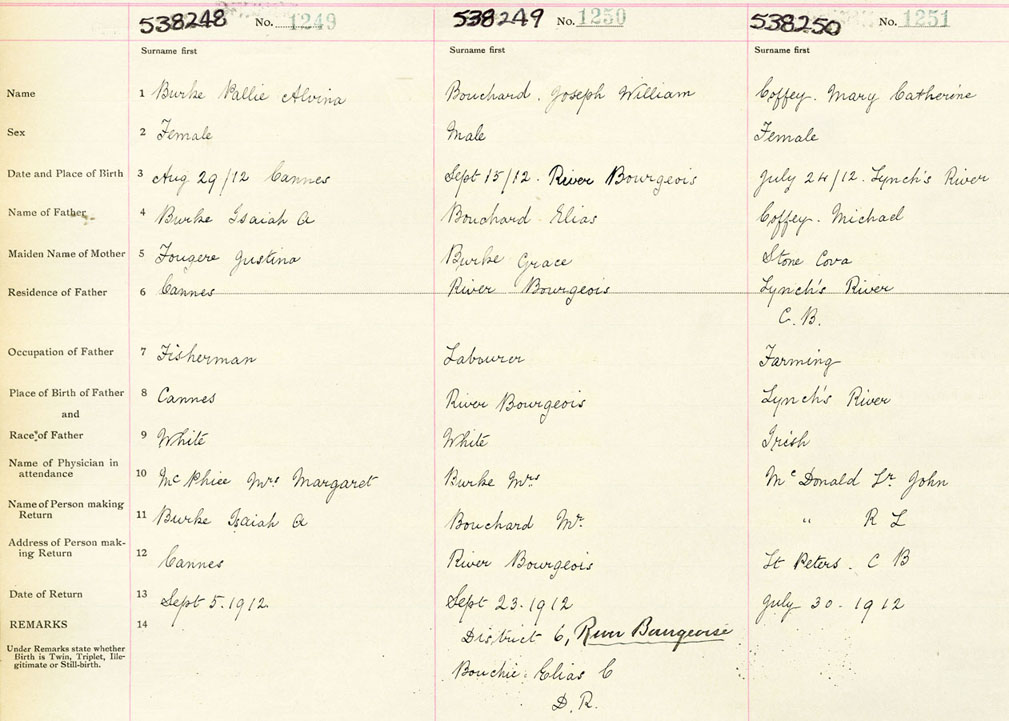 538248 No. 1249 538249 No. 1250 538250 No. 1251
Surname first Surname first Surname first
Name 1 Burke Pallie Alvina Bouchard. Joseph William Coffey. Mary Catherine
Sex 2 Female Male Female
Date and Place of Birth 3 Aug 29/12 Cannes Sept 15/12. River Bourgeois July 24/12. Lynch's River
Name of Father 4 Burke Isaiah A Bouchard Elias Coffey. Michael
Maiden Name of Mother 5 Fougere Justina Burke Grace Stone Cova
Residence of Father 6 Cannes River Bourgeois Lynch's River
C. B.
Occupation of Father 7 Fisherman Labourer Farming
Place of Birth of Father 8 Cannes River Bourgeois Lynch's River
and
Race of Father 9 White White Irish
Name of Physician in
attendance 10 McPhiee Mrs Margaret Burke Mrs McDonald John
Name of Person making
Return 11 Burke Isaiah A Bouchard Mr. " R L
Address of Person mak-
ing Return 12 Cannes River Bourgeois St Peters. C B
Date of Return 13 Sept 5. 1912. Sept 23. 1912 July 30. 1912
REMARKS 14 District 6, River Bourgeoise
Under Remarks state whether
Birth is Twin, Triplet, Ille-
gitimate or Still-birth.
Bouchie. Elias C
D. R.